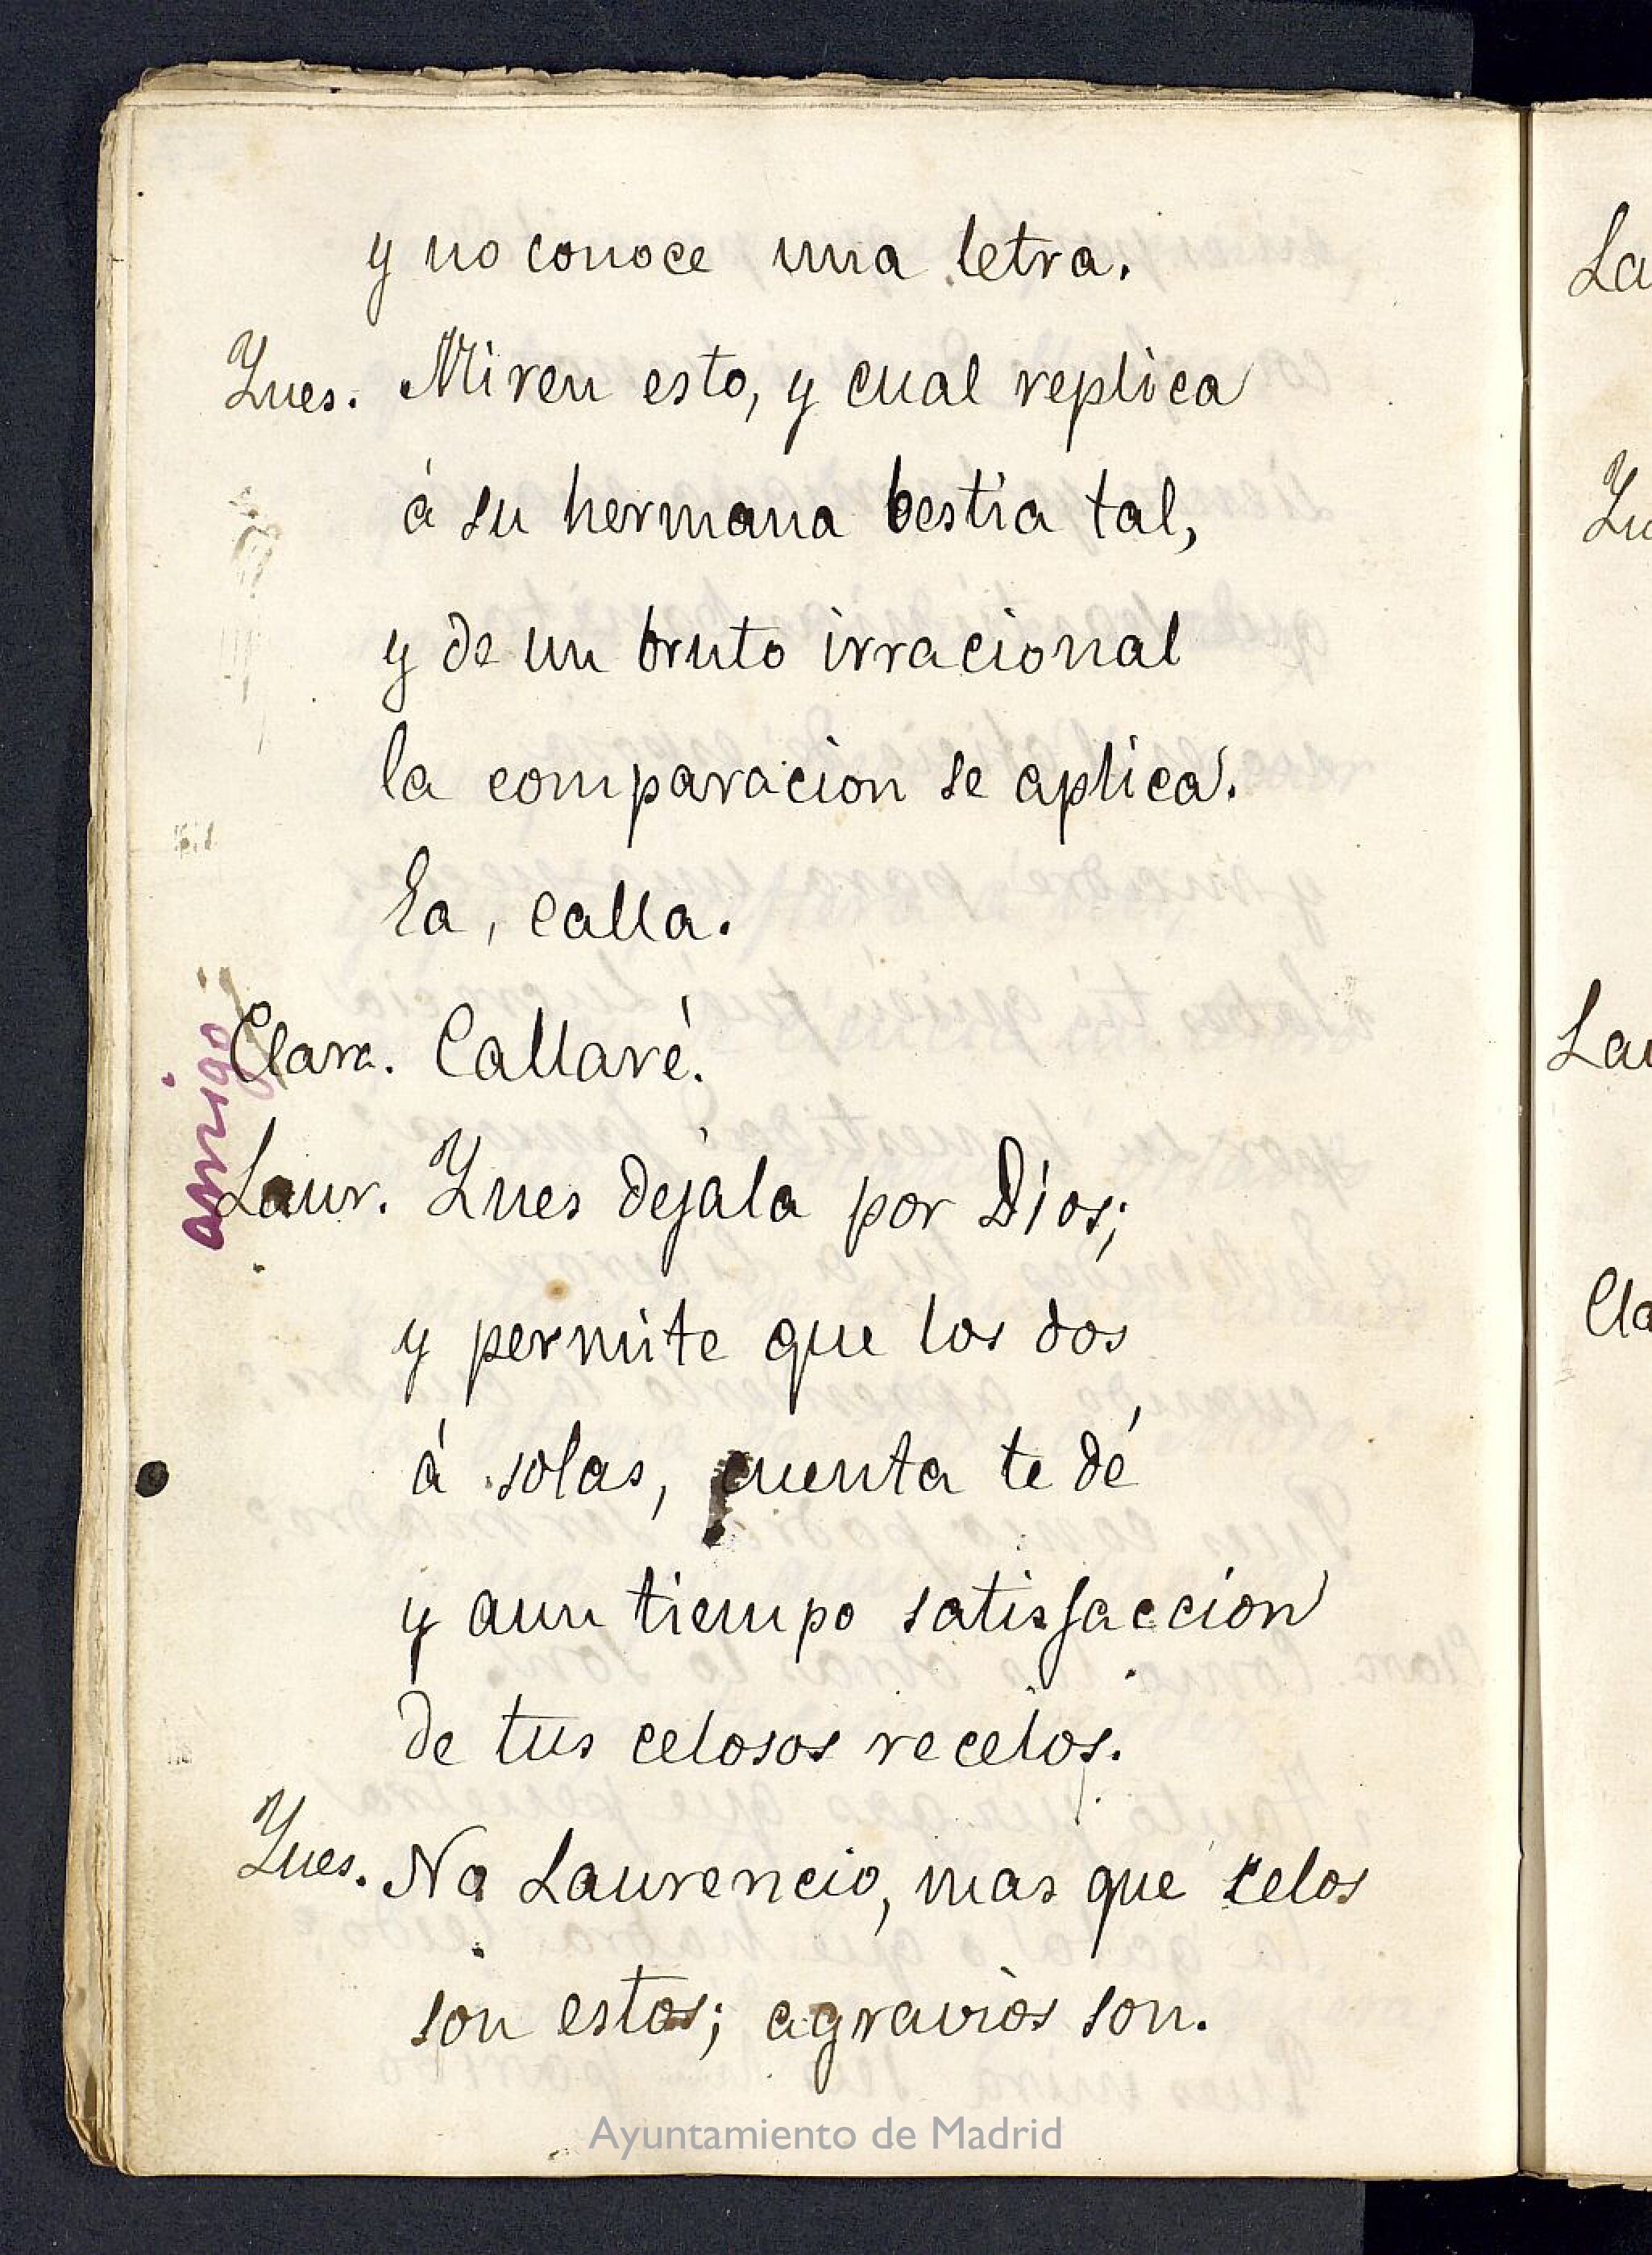 y no conoce una letra.
Ynes. Miren esto, y cual replica
á su hermana bestia tal,
y de un bruto irracional
la comparacion se aplica.
Ea, calla.
Clara. Callaré.
amigo
Laur. Ynes dejála por Dios;
y permite que los dos
á solas, cuenta te dé
y aun tiempo satisfaccion
de tus celosos recelos.
Ynes. No Laurencio, mas que celos
son estos; agravios son.
La
Yn
Lau
Cla
Ayuntamiento de Madrid